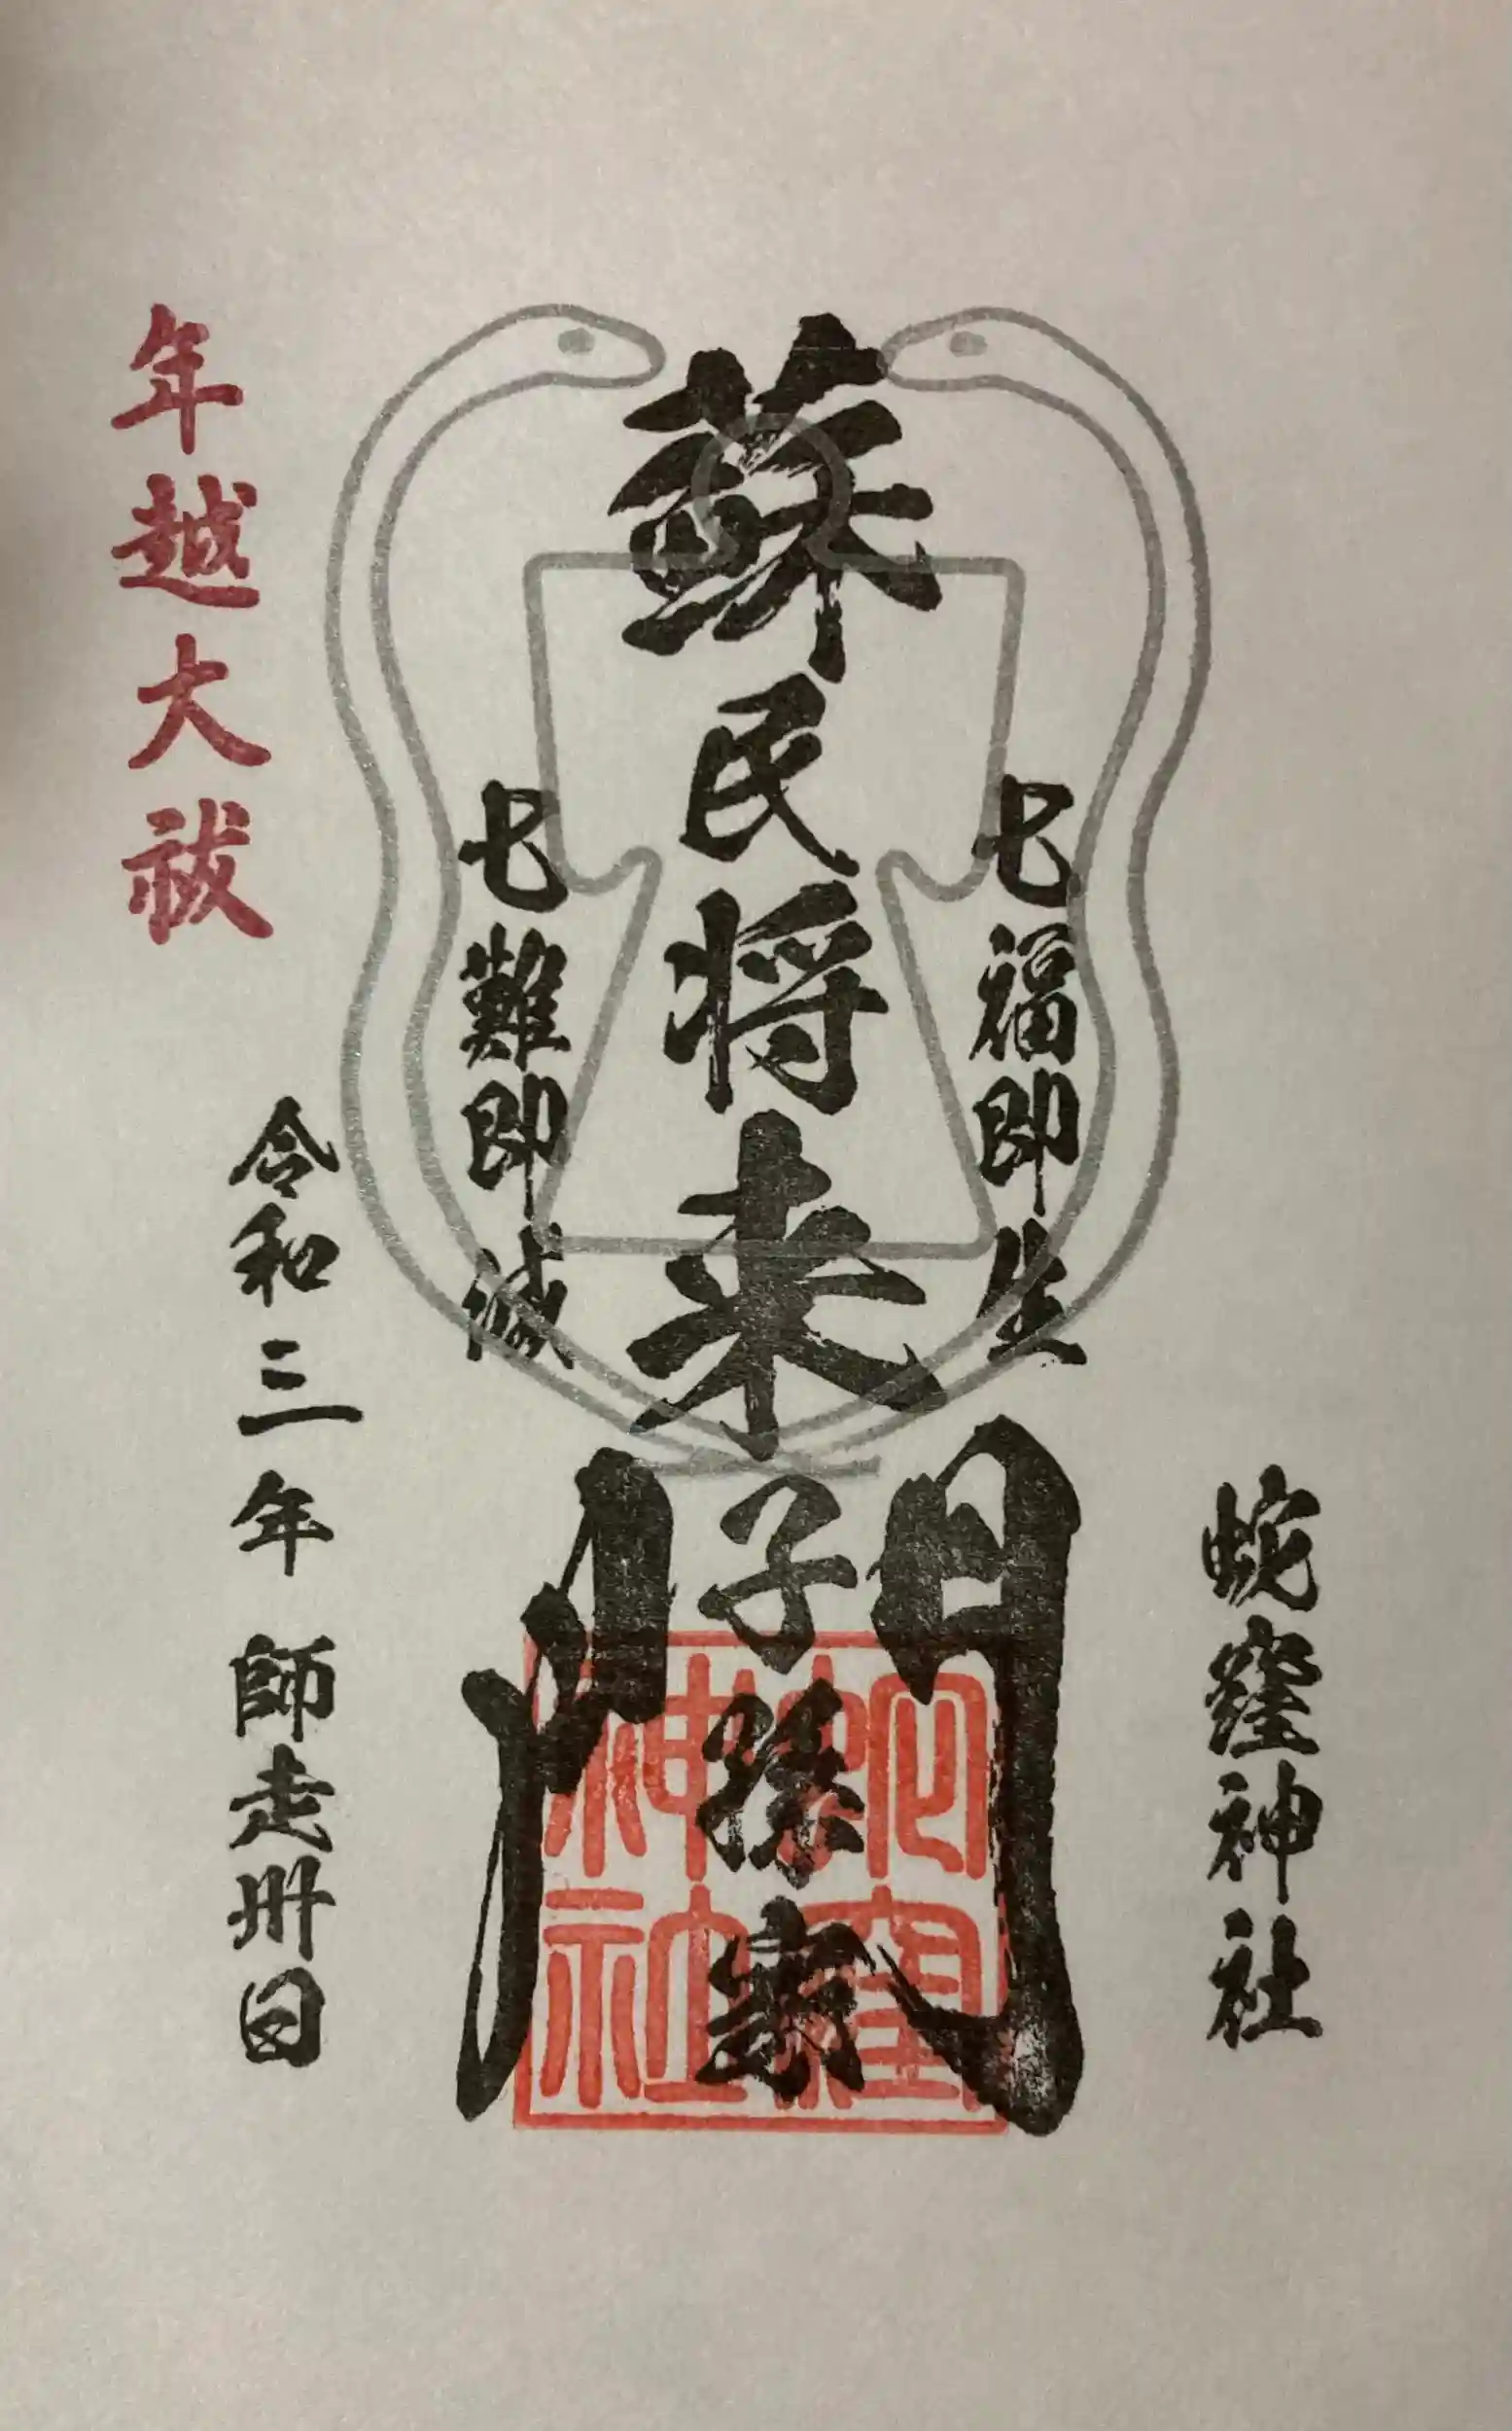 蛇窪神社
七福即生
蘇民将来子孫家門
七難即滅
令和三年 師走卅日
年越大祓
蛇窪神社